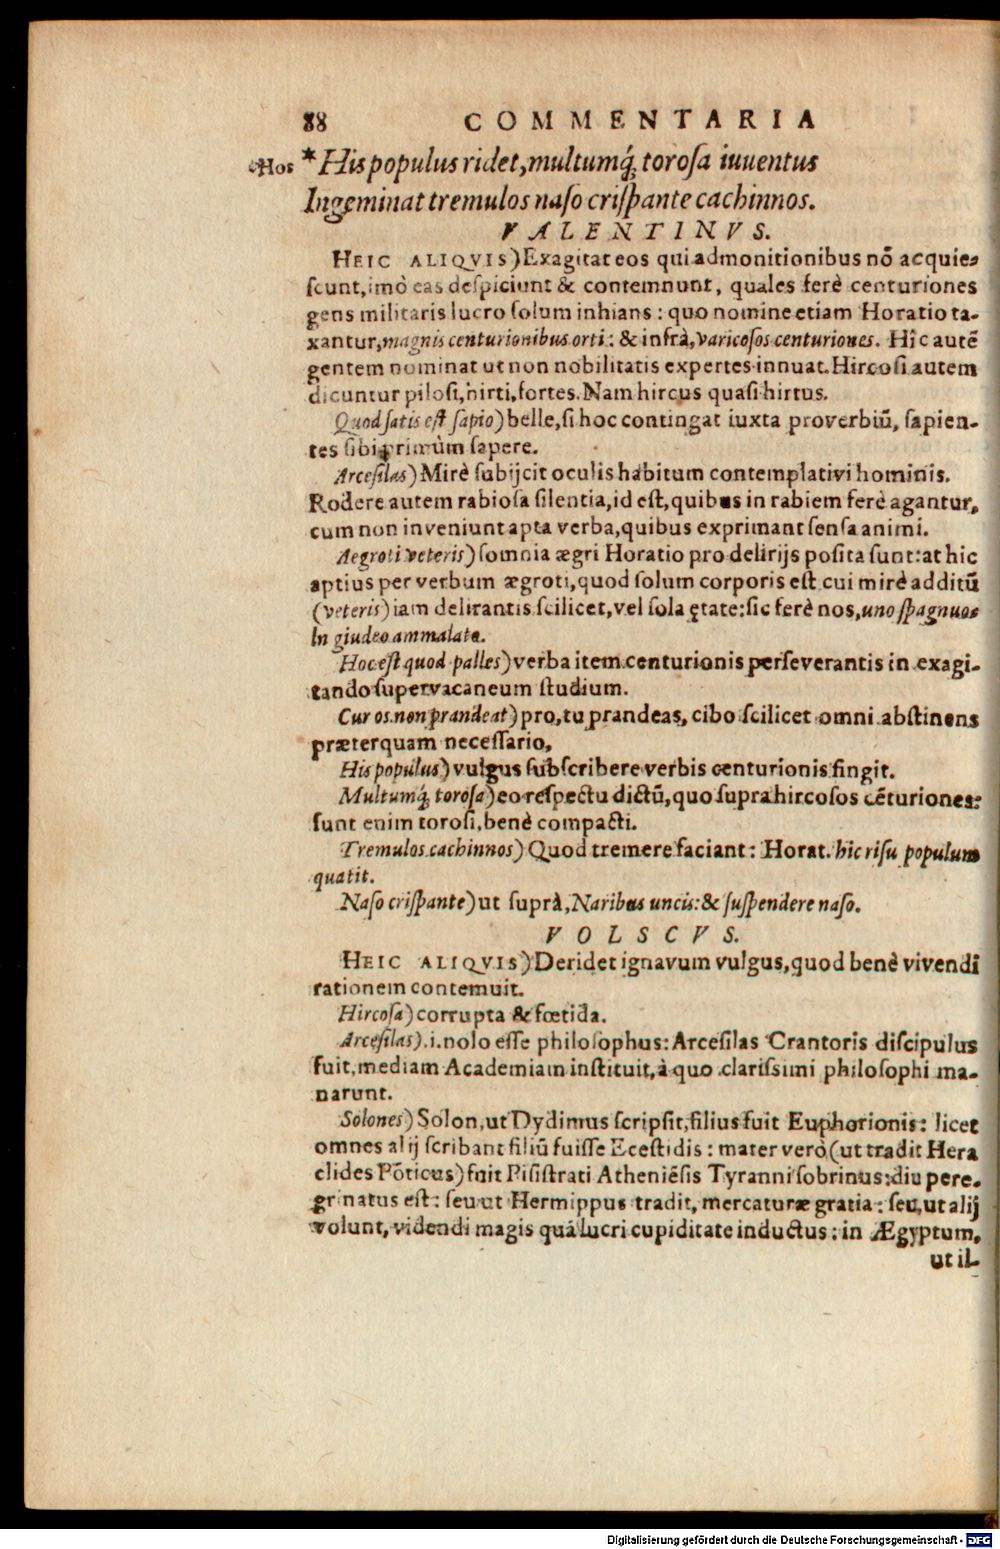 88 COMMENTARIA
*Hos *His populus ridet, multumq́; torosa iuuentus
Ingeminat tremulos naso crispante cachinnos.
VALENTINVS.
HEIC ALIQVIS) Exagitat eos qui admonitionibus nō acquie-
scunt, imò eas despiciunt & contemnunt, quales ferè centuriones
gens militaris lucro solum inhians: quo nomine etiam Horatio ta-
xantur, magnis centurionibus orti: & infrà, varicosos centuriones. Hîc autē
gentem nominat ut non nobilitatis expertes innuat. Hircosi autem
dicuntur pilosi, hirti, fortes. Nam hircus quasi hirtus.
Quod satis est sapio) belle, si hoc contingat iuxta proverbiū, sapien-
tes sibi primùm sapere.
Arcesilas) Mirè subijcit oculis habitum contemplativi hominis.
Rodere autem rabiosa silentia, id est, quibus in rabiem ferè agantur,
cum non inveniunt apta verba, quibus exprimant sensa animi.
Aegroti veteris) somnia ægri Horatio pro delirijs posita sunt: at hic
aptius per verbum ægroti, quod solum corporis est cui mirè additū
(veteris) iam delirantis scilicet, vel sola ętate: sic ferè nos, uno spagnuos
In giudeo ammalato.
Hoc est quod palles) verba item centurionis perseverantis in exagi-
tando supervacaneum studium.
Cur os non prandeat) pro, tu prandeas, cibo scilicet omni abstinens
præterquam necessario,
His populus) vulgus subscribere verbis centurionis fingit.
Multumq́; torosa) eo respectu dictū, quo supra hircosos cēturiones:
sunt enim torosi, benè compacti.
Tremulos cachinnos) Quod tremere faciant: Horat. hic risu populum
quatit.
Naso crispante) ut suprà, Naribus uncis: & suspendere naso.
VOLSCVS.
HEIC ALIQVIS) Deridet ignavum vulgus, quod benè vivendi
rationem contemuit.
Hircosa) corrupta & fœtida.
Arcesilas). i. nolo esse philosophus: Arcesilas Crantoris discipulus
fuit, mediam Academiam instituit, à quo clarissimi philosophi ma-
narunt.
Solones) Solon, ut Dydimus scripsit, filius fuit Euphorionis: licet
omnes alij scribant filiū fuisse Ecestidis: mater verò (ut tradit Hera
clides Pōticus) fuit Pisistrati Atheniēsis Tyranni sobrinus: diu pere-
grinatus est: seu ut Hermippus tradit, mercaturæ gratia: seu, ut alij
volunt, videndi magis quā lucri cupiditate inductus: in Ægyptum,
ut il-
Digitalisierung gefördert durch die Deutsche Forschungsgemeinschaft - DFG